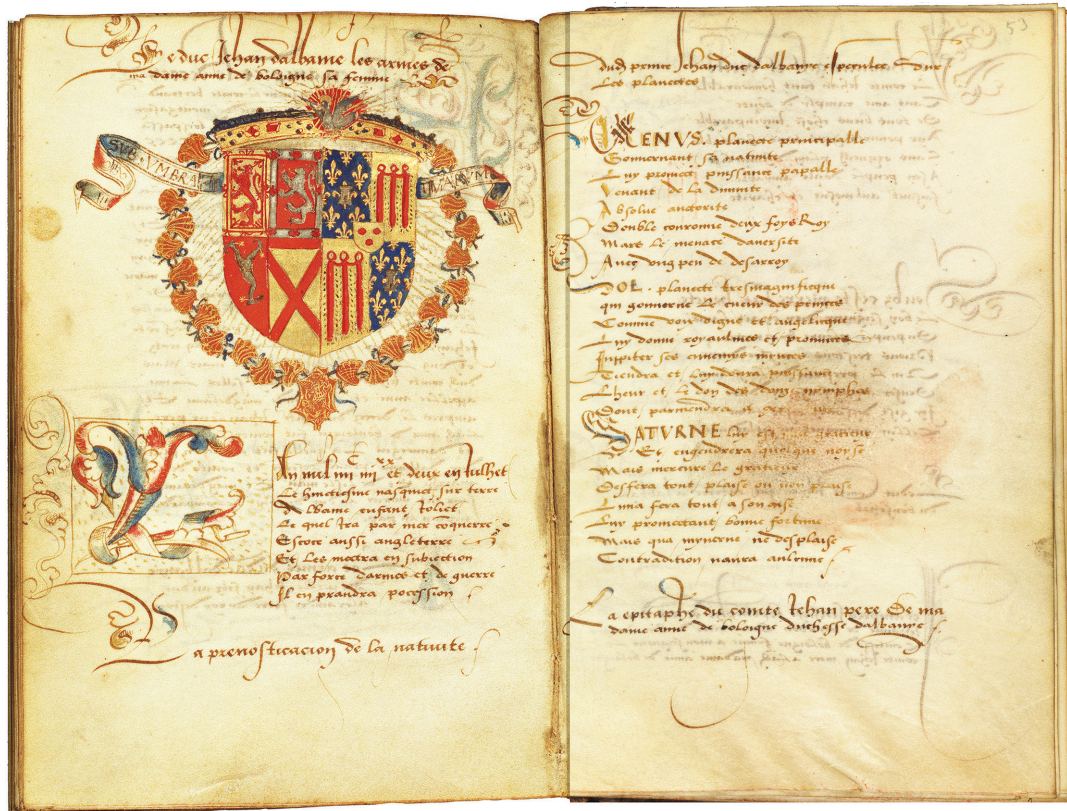 Le duc Jehan dalbanie les armes de
ma dame anne de boloigne sa femme
SVB VMBRA
TVARVM
Lan mil iiii C iiii xx et deux en Julhet
Le huictiesme nasquit sur terre
Albanie enfant Joliet
Le quel Ira par mer coquerre
Escoce aussi angleterre
Et Les mectra en subiection
Par force darmes et de guerre
Il en prandra pocession
La prenosticacion de la natiuite
53
dud prince Jehan duc dalbanye speculee Sur
Les planectes
VENVS planecte principalle
Gouuernant sa natiuite
Luy promect puissance papalle
Venant de la diuinite
Absolue auctorite
Double couronne deux foys Roy
Mars Le menace dauersite
Auec ung peu de desarroy
SOL planecte tresmagnificque
qui gouuerne Le cueur des princes
Comme voir digne et angelicque
Luy donne royaulmes et prouinces
Juppiter ses ennemys
Tiendra et
Lheur et Le don des
Dont paruiendra
SATVRNE Luy est mal gratieux
Et engendrera quelque noyse
Mais mercure Le gratieux
Desfera tout plaise ou non plaise
Luna fera tout a son aise
Luy promectant bonne fortune
Mais qua mynerue ne desplaise
Contradition naura aulcune
La epitaphe du comte Jehan pere De ma
dame anne de boloigne duchesse dalbanye